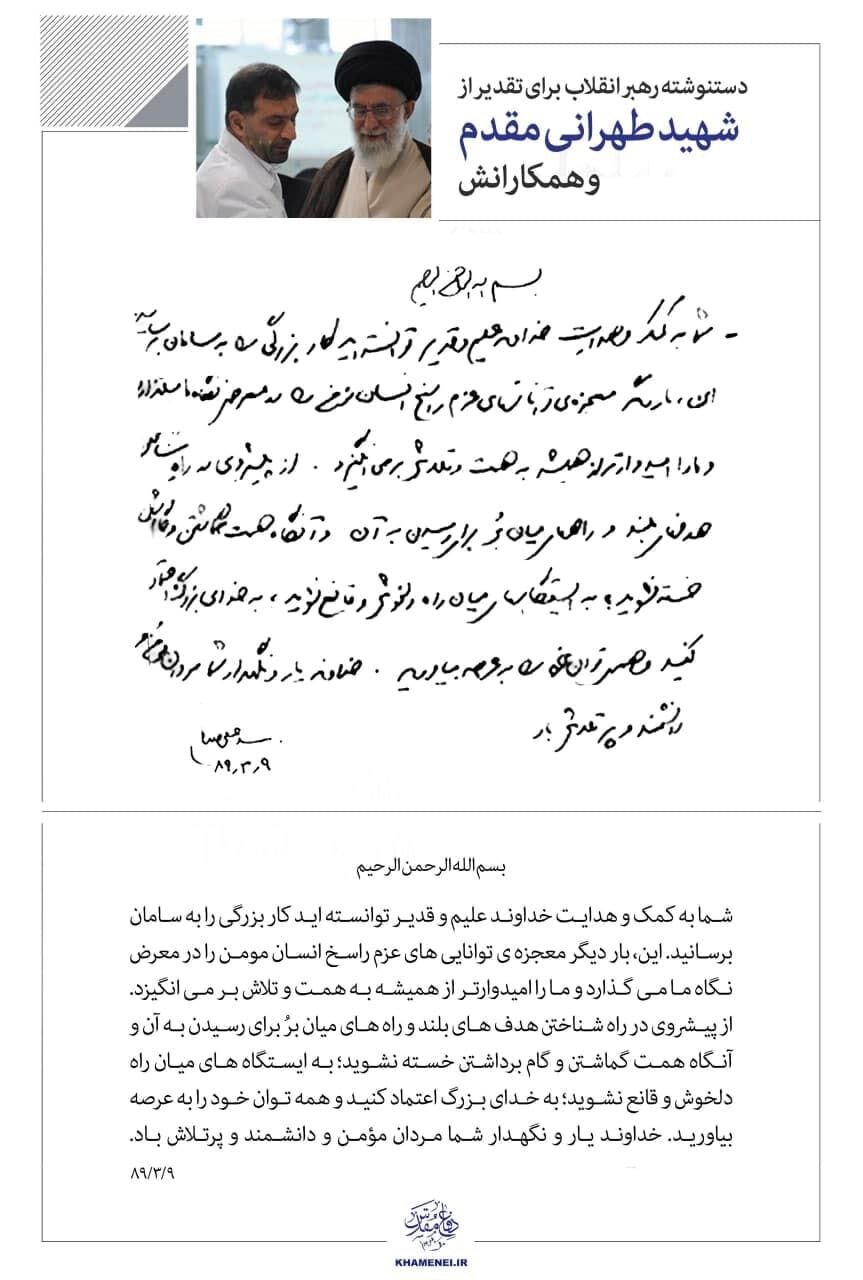 دستنوشته رهبر انقلاب برای تقدیر از
شهید طهرانی مقدم
و همکارانش
بسم الله الرحمن الرحیم
- شما به کمک و هدایت خداوند علیم و قدیر توانسته اید کار بزرگی را به سامان برسانید.
این، بار دیگر معجزه‌ی توانایی‌های عزم راسخ انسان مومن را در معرض نگاه ما میگذارد
و ما را امیدوارتر از همیشه به همت و تلاش برمی‌انگیزد. از پیشروی در راه شناختن
هدفهای بلند و راههای میان بُر برای رسیدن به آن و آنگاه همت گماشتن و گام برداشتن
خسته نشوید؛ به ایستگاههای میان راه دلخوش و قانع نشوید، به خدای بزرگ اعتماد
کنید و همه‌ی توان خود را به عرصه بیاورید. خداوند یار و نگهدار شما مردان مؤمن و
دانشمند و پرتلاش باد
۸۹/۳/۹
بسم الله الرحمن الرحیم
شما به کمک و هدایت خداوند علیم و قدیر توانسته اید کار بزرگی را به سامان
برسانید. این، بار دیگر معجزه ی توانایی های عزم راسخ انسان مومن را در معرض
نگاه ما می گذارد و ما را امیدوارتر از همیشه به همت و تلاش بر می انگیزد.
از پیشروی در راه شناختن هدف های بلند و راه های میان بُر برای رسیدن به آن و
آنگاه همت گماشتن و گام برداشتن خسته نشوید؛ به ایستگاه های میان راه
دلخوش و قانع نشوید؛ به خدای بزرگ اعتماد کنید و همه توان خود را به عرصه
بیاورید. خداوند یار و نگهدار شما مردان مؤمن و دانشمند و پرتلاش باد.
۸۹/۳/۹
دفاع مقدس
KHAMENEI.IR